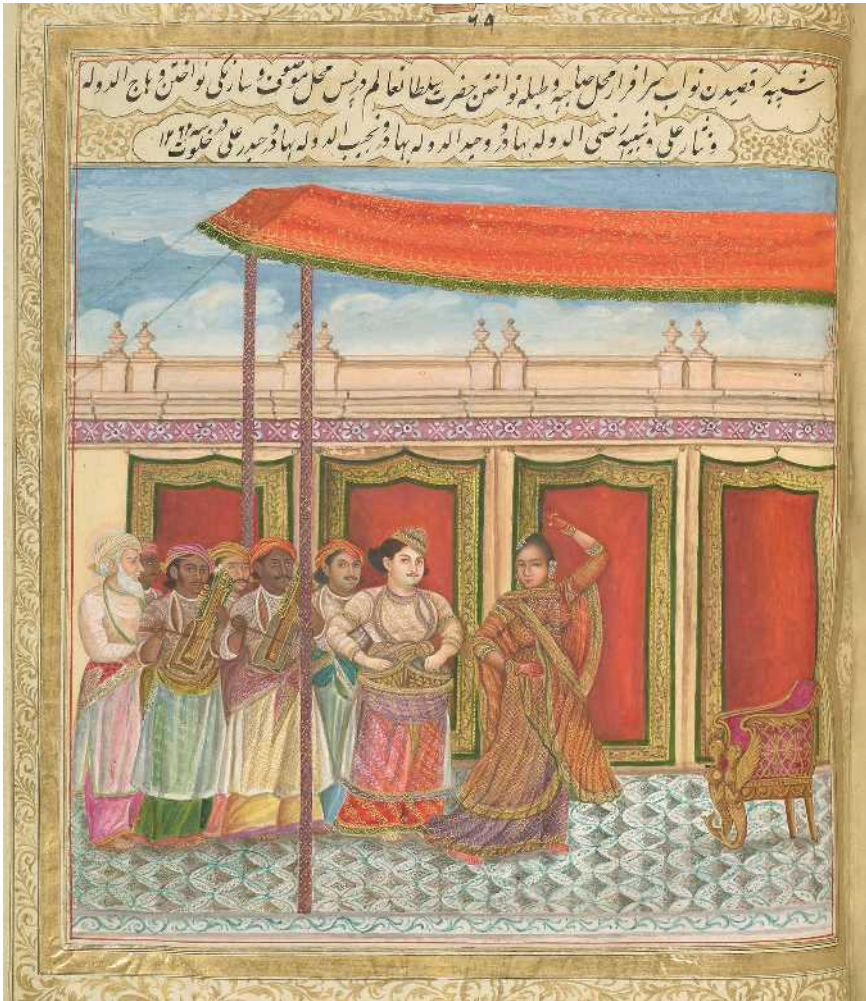 ۶۹
شبیه رقصیدن نواب سرافراز محل صاحبه و طبله نواختن حضرت سلطانعالم در پس محل موصوف و سارنگی نواختن وهاج الدوله
و نثار علی و شبیه رضی الدوله بهادر وحید الدوله بهادر نجیب الدوله بهادر و حیدر علی در خلوت سنه ۱۲۶۲